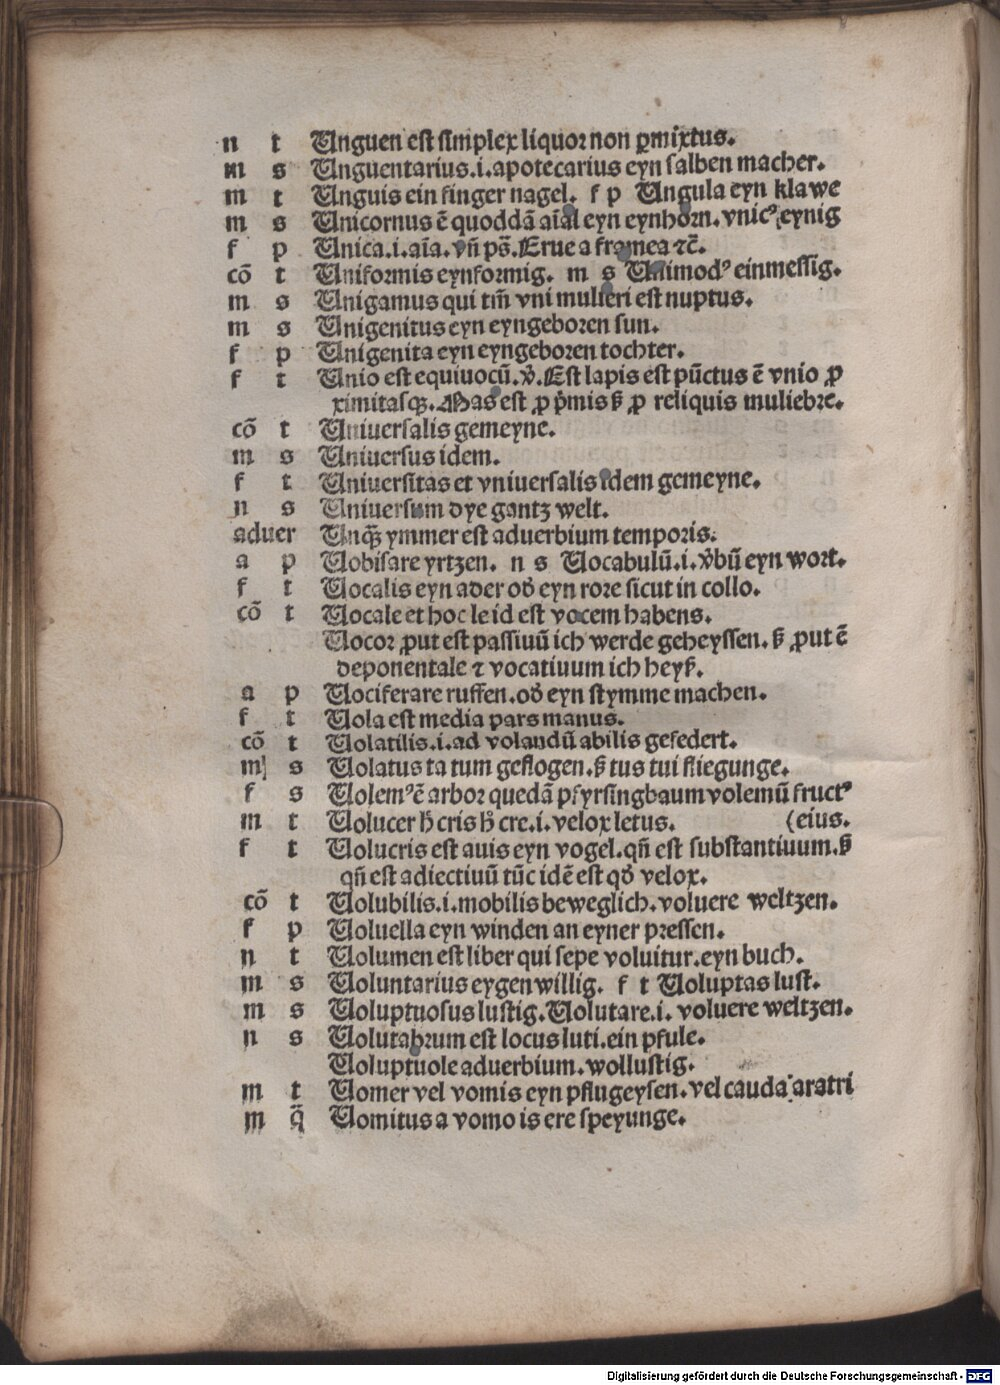 n t Unguen est simplex liquor non ꝑmixtus.
m s Unguentarius.i.apotecarius eyn salben macher.
m t Unguis ein finger nagel. f p Ungula eyn klawe
m s Unicornus ē quoddā aīal eyn eynhorn. vnicꝰ eynig
f p Unica.i.aīa. vñ ps̄. Erue a framea ⁊c̄.
cō t Uniformis eynformig. m s Unimodꝰ einmessig.
m s Unigamus qui tm̄ vni mulieri est nuptus.
m s Unigenitus eyn eyngeboren sun.
f p Unigenita eyn eyngeboren tochter.
f t Unio est equiuocū. v̄. Est lapis est pūctus ē vnio ꝓ
ximitasqꝫ. Mas est ꝓ p̄mis ß ꝓ reliquis muliebre.
cō t Uniuersalis gemeyne.
m s Uniuersus idem.
f t Uniuersitas et vniuersalis idem gemeyne.
n s Uniuersum dye gantz welt.
aduer Unqꝫ ymmer est aduerbium temporis.
a p Uobisare yrtzen. n s Uocabulū.i.v̄bū eyn wort.
f t Uocalis eyn ader od̄ eyn rore sicut in collo.
cō t Uocale et hoc le id est vocem habens.
Uocor ꝓut est passiuū ich werde geheyssen. ß ꝓut ē
deponentale ⁊ vocatiuum ich heyß.
a p Uociferare ruffen. od̄ eyn stymme machen.
f t Uola est media pars manus.
cō t Uolatilis.i.ad volandū abilis gefedert.
m s Uolatus ta tum geflogen. ß tus tui fliegunge.
f s Uolemꝰ ē arbor quedā pfyrsingbaum volemū fructꝰ
m t Uolucer h̄ cris h̄ cre.i. velox letus. (eius.
f t Uolucris est auis eyn vogel. qn̄ est substantiuum. ß
qn̄ est adiectiuū tūc idē est qd̄ velox.
cō t Uolubilis.i.mobilis beweglich. voluere weltzen.
f p Uoluella eyn winden an eyner pressen.
n t Uolumen est liber qui sepe voluitur. eyn buch.
m s Uoluntarius eygenwillig. f t Uoluptas lust.
m s Uoluptuosus lustig. Uolutare.i. voluere weltzen.
n s Uolutabrum est locus luti. ein pfule.
Uoluptuole aduerbium. wollustig.
m t Uomer vel vomis eyn pflugeysen. vel cauda aratri
m q̄ Uomitus a vomo is ere speyunge.
Digitalisierung gefördert durch die Deutsche Forschungsgemeinschaft - DFG